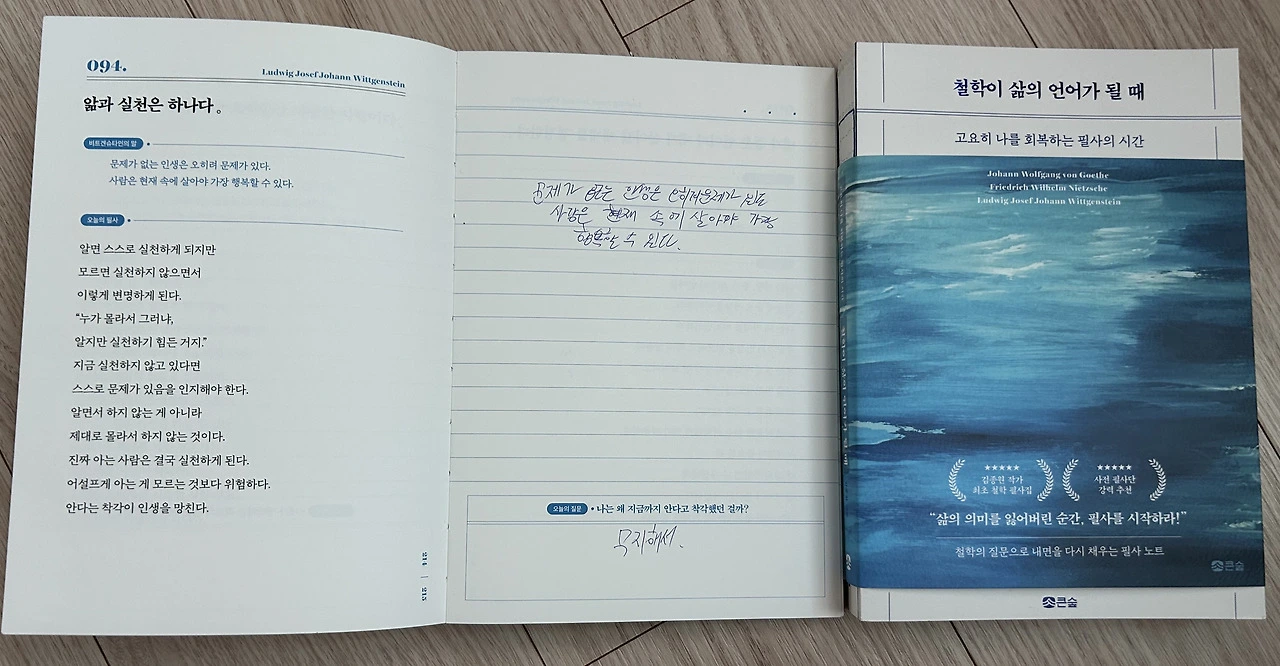 094.
Ludwig Josef Johann Wittgenstein
앎과 실천은 하나다.
비트겐슈타인의 말
문제가 없는 인생은 오히려 문제가 있다.
사람은 현재 속에 살아야 가장 행복할 수 있다.
오늘의 필사
알면 스스로 실천하게 되지만
모르면 실천하지 않으면서
이렇게 변명하게 된다.
“누가 몰라서 그러냐,
알지만 실천하기 힘든 거지.”
지금 실천하지 않고 있다면
스스로 문제가 있음을 인지해야 한다.
알면서 하지 않는 게 아니라
제대로 몰라서 하지 않는 것이다.
진짜 아는 사람은 결국 실천하게 된다.
어설프게 아는 게 모르는 것보다 위험하다.
안다는 착각이 인생을 망친다.
214 | 215
문제가 없는 인생은 오히려문제가 있고
사람은 현재 속에 살아야 가장
행복할 수 있다.
오늘의 질문 • 나는 왜 지금까지 안다고 착각했던 걸까?
무지해서.
철학이 삶의 언어가 될 때
고요히 나를 회복하는 필사의 시간
Johann Wolfgang von Goethe
Friedrich Wilhelm Nietzsche
Ludwig Josef Johann Wittgenstein
김종원 작가
최초 철학 필사집
사전 필사단
강력 추천
“삶의 의미를 잃어버린 순간, 필사를 시작하라!”
철학의 질문으로 내면을 다시 채우는 필사 노트
큰숲
큰숲